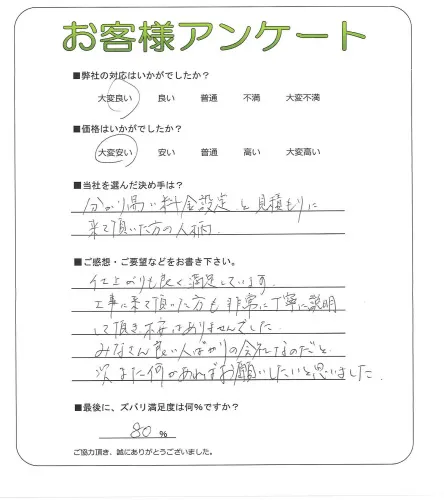 お客様アンケート
■弊社の対応はいかがでしたか？
大変良い 良い 普通 不満 大変不満
■価格はいかがでしたか？
大変安い 安い 普通 高い 大変高い
■当社を選んだ決め手は？
分かり易い料金設定と見積もりに
来て頂いた方の人柄.
■ご感想・ご要望などをお書き下さい。
仕上がりも良く満足しています.
工事に来て頂いた方も非常に丁寧に説明
して頂き不安はありませんでした.
みなさん良い人ばかりの会社なのだと
次また何かあればお願いしたいと思いました.
■最後に、ズバリ満足度は何％ですか？
80 %
ご協力頂き、誠にありがとうございました。